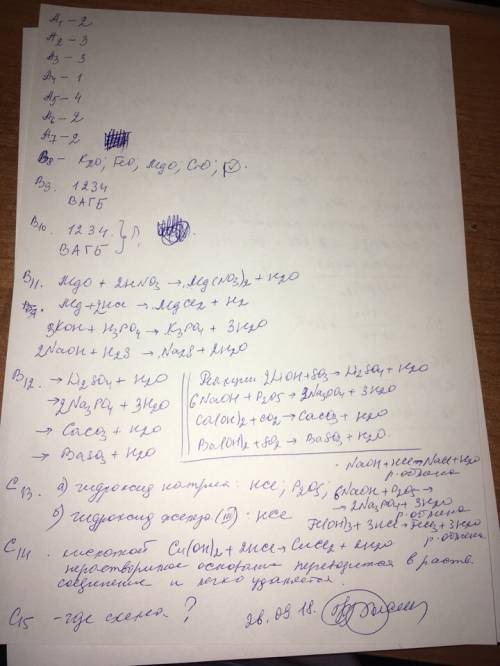 А1 – 2
А2 – 3
А3 – 3
А4 – 1
А5 – 4
А6 – 2
А7 – 2
В8 – K2O; FeO, MgO, CrO;
В9. 1234
ВАГБ
В10. 1234
ВАГБ
В11. MgO + 2HNO3 → Mg(NO3)2 + H2O
Mg + 2HCl → MgCl2 + H2
3KOH + H3PO4 → K3PO4 + 3H2O
2NaOH + H2S → Na2S + 2H2O
В12. → Li2SO4 + H2O
→ 2Na3PO4 + 3H2O
→ CaCO3 + H2O
→ BaSO3 + H2O
Реакции 2LiOH + SO3 → Li2SO4 + H2O
6NaOH + P2O5 → 2Na3PO4 + 3H2O
Ca(OH)2 + CO2 → CaCO3 + H2O
Ba(OH)2 + SO2 → BaSO3 + H2O.
NaOH + HCl → NaCl + H2O
р. обмена
С13. а) гидроксид натрия: HCl; P2O5; 6NaOH + P2O5 →
→ 2Na3PO4 + 3H2O
р. обмена
б) гидроксид железа (III): HCl
Fe(OH)3 + 3HCl → FeCl3 + 3H2O
р. обмена
С14. кислотой Cu(OH)2 + 2HCl → CuCl2 + 2H2O
нерастворимое основание переводится в раств.
соединение и легко удаляется.
С15 – где схема?
26.09.18.